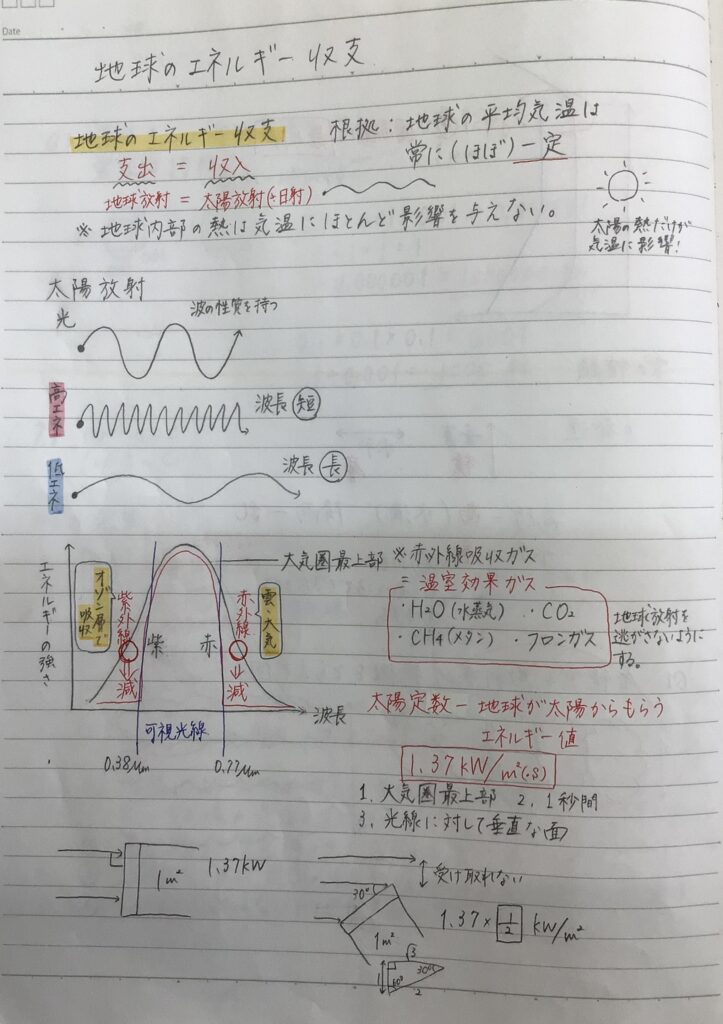 Date
地球のエネルギー収支
地球のエネルギー収支
根拠：地球の平均気温は
常に(ほぼ)一定
支出 = 収入
地球放射 = 太陽放射(≒日射)
※地球内部の熱は気温にほとんど影響を与えない。
太陽の熱だけが
気温に影響！
太陽放射
光
波の性質を持つ
高エネ
波長 短
低エネ
波長 長
エネルギーの強さ
オゾン層で
吸収
紫外線
減
紫
赤
赤外線
減
雲・大気
大気圏最上部
可視光線
波長
0.38μm
0.77μm
※赤外線吸収ガス
= 温室効果ガス
・H2O(水蒸気) ・CO2
・CH4(メタン) ・フロンガス
地球放射を
逃がさないように
する。
太陽定数 ― 地球が太陽からもらう
エネルギー値
1.37kW/m²(・s)
1. 大気圏最上部 2. 1秒間
3. 光線に対して垂直な面
1m²
1.37kW
受け取れない
30°
1m²
1.37 × 1/2 kW/m²
√3
1
60°
30°
2